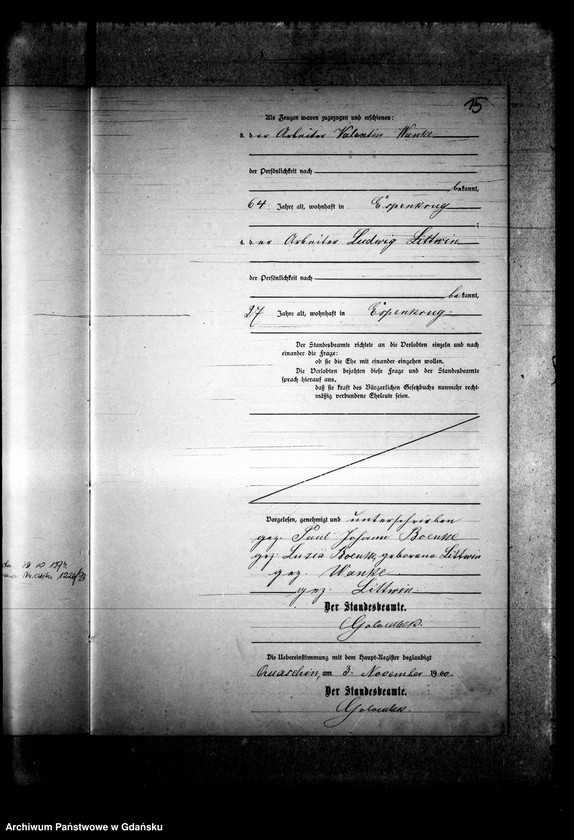 15
Als Zeugen waren zugezogen und erschienen:
3. der Arbeiter Valentin Wanke
der Persönlichkeit nach
bekannt,
64 Jahre alt, wohnhaft in Espenkrug
;
4. der Arbeiter Ludwig Littwin
der Persönlichkeit nach
bekannt,
27 Jahre alt, wohnhaft in Espenkrug.
Der Standesbeamte richtete an die Verlobten einzeln und nach
einander die Frage:
ob sie die Ehe mit einander eingehen wollen.
Die Verlobten bejahten diese Frage und der Standesbeamte
sprach hierauf aus,
daß sie kraft des Bürgerlichen Gesetzbuchs nunmehr recht-
mäßig verbundene Eheleute seien.
Vorgelesen, genehmigt und unterschrieben
gez. Paul Johann Boenke
gez. Luzia Boenke, geborene Littwin
gez. Wanke
gez. Littwin
Der Standesbeamte.
Die Uebereinstimmung mit dem Haupt-Register beglaubigt
Quaschin, am 3. November 1900.
Der Standesbeamte.
Archiwum Państwowe w Gdańsku